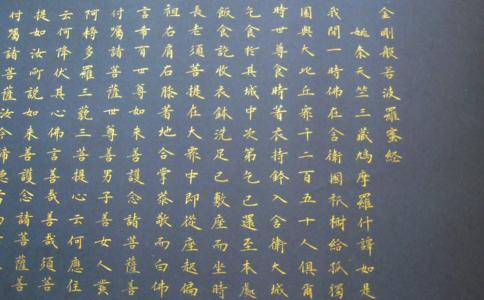 金剛般若波羅蜜經
姚秦天竺三藏鳩摩羅什譯如是
我聞一時佛在舍衛國祇樹給孤獨
園與大比丘眾千二百五十人俱爾
時世尊食時著衣持鉢入舍衛大城
乞食於其城中次第乞已還至本處
飯食訖收衣鉢洗足已敷座而坐時
長老須菩提在大眾中即從座起偏
袒右肩右膝著地合掌恭敬而白佛
言希有世尊如來善護念諸菩薩善
付囑諸菩薩世尊善男子善女人發
阿耨多羅三藐三菩提心云何應住
云何降伏其心佛言善哉善哉須菩
提如汝所說如來善護念諸菩薩善
付囑諸菩薩汝今諦